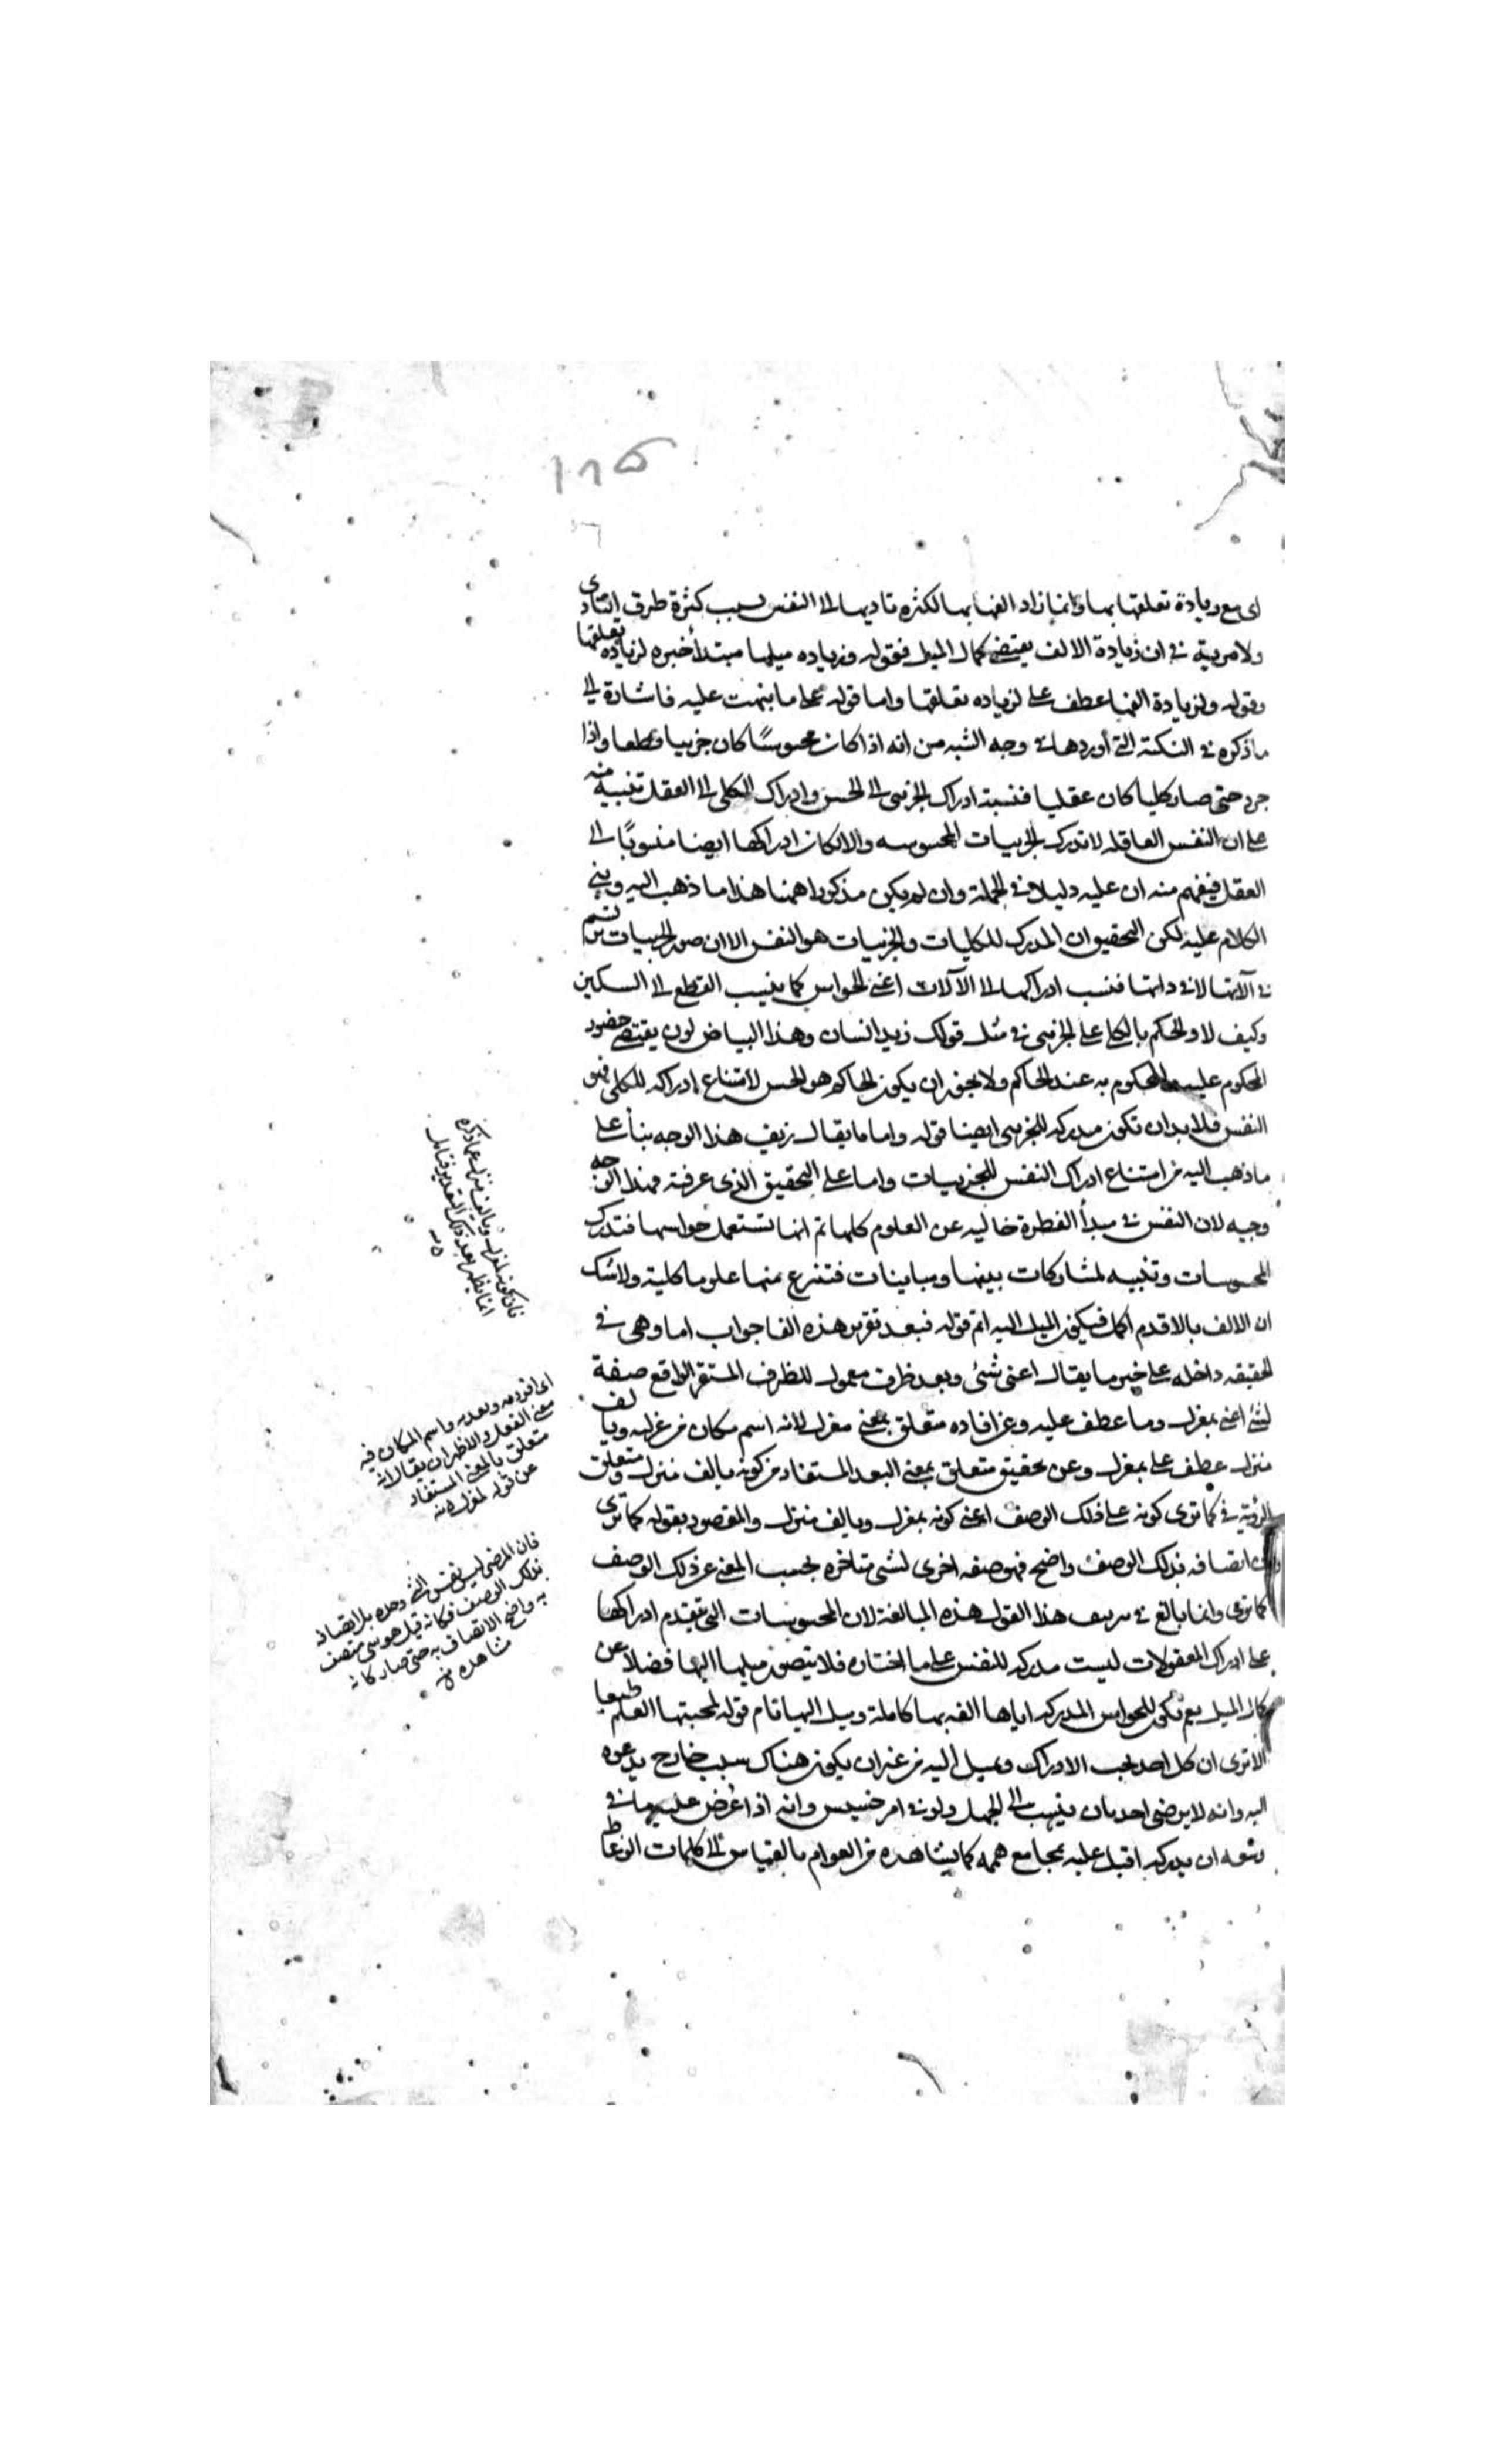 ١٨٥
اى مع زيادة تعلقها بها وانما زاد الفها بها لكثرة تاديها الى النفس بسبب كثرة طرق التادى
ولا مرية فى ان زيادة الالف يقتضى كمال الميل فقوله وزياده ميلها مبتدأ خبره لزياده تعلقها
وقوله ولزيادة الفها عطف على لزياده تعلقها واما قوله على ما نبهت عليه فاشارة الى
ماذكره فى النكتة التى أوردها فى وجه الشبه من انه اذا كان محسوسًا كان جزييا قطعا واذا
جرد حتى صار كليا كان عقليا فنسبة ادراك الجزئى الى الحس وادراك الكلى الى العقل تنبيه منه
على ان النفس العاقله لا تدرك الجزييات المحسوسه والا لكان ادراكها ايضا منسوبًا الى
العقل فيفهم منه ان عليه دليلا فى الجملة وان لم يكن مذكورا ههنا هذا ما ذهب اليه وبنى
الكلام عليه لكن التحقيق ان المدرك للكليات والجزئيات هو النفس الا ان صور الجزييات ترتسم
فى آلاتها لا فى ذاتها فنسب ادراكها الى الآلات اعنى الحواس كما ينسب القطع الى السكين
وكيف لا والحكم بالكلى على الجزئى فى مثل قولك زيد انسان وهذا البياض لون يقتضى حضور
المحكوم عليه والمحكوم به عند الحاكم ولا يجوز ان يكون الحاكم هو الحس لامتناع ادراكه للكلى فهو
النفس فلا بد ان تكون مدركه للجزئى ايضا قوله واما ما يقال زيف هذا الوجه بنأ على
ما ذهب اليه من امتناع ادراك النفس للجزييات واما على التحقيق الذى عرفته فهذا الوجه
وجيه لان النفس فى مبدأ الفطرة خاليه عن العلوم كلها ثم انها تستعمل حواسها فتدرك
المحسوسات وتنبيه لمشاركات بينها ومباينات فتنزع منها علوما كلية ولا شك
ان الالف بالاقدم اكمل فيكون الميل اليه اتم قوله فبعد تقرير هذه الفا جواب اما وهى فى
الحقيقه داخله على خبر ما يقال اعنى شئى وبعد ظرف معمول للظرف المستقر الواقع صفة
لشئ اعنى بمعزل وما عطف عليه وعن افاده متعلق بمعنى معزل لانه اسم مكان من عزله وبالف
منزل عطف على بمعزل وعن تحقيق متعلق بمعنى البعد المستفاد من كونه بالف منزل ومتعلق
الرؤية فى كما ترى كونه على ذلك الوصف اعنى كونه بمعزل وبالف منزل والمقصود بقوله كما ترى
ان اتصافه بذلك الوصف واضح فهو صفه اخرى لشئى متاخره بحسب المعنى عن ذلك الوصف
كما ترى وانما بالغ فى تزييف هذا القول هذه المبالغة لان المحسوسات التى يتقدم ادراكها
على ادراك المعقولات ليست مدركه للنفس على ما اختاره فلا يتصور ميلها اليها فضلا عن
كمال الميل نعم تكون للحواس المدركه اياها الفه بها كاملة وميل اليها تام قوله لمحبتها العلم طبعا
الا ترى ان كل احد يحب الادراك ويميل اليه من غير ان يكون هناك سبب خارج يدعوه
اليه وانه لا يرضى احد بان ينسب الى الجهل ولو فى امر خسيس وانه اذا عُرض عليه ما فى
وسعه ان يدركه اقبل عليه بمجامع همه كما يشاهده من العوام بالقياس الى كلمات الوعاظ
فان كونه بمعزل وبالف منزل عما ذكره
انما يظهر بعد ذلك التقدير فتامل
اى واسم المكان فيه
معنى الفعل والاظهر ان يقال انه
متعلق بالمعنى المستفاد
عن قوله بمعزل منه
فان المرئى ليس نفس الشئ وحده بل اتصافه
بذلك الوصف فكانه قيل هو شئ متصف
به واضح الاتصاف به حتى صار كانه
مشاهده منه